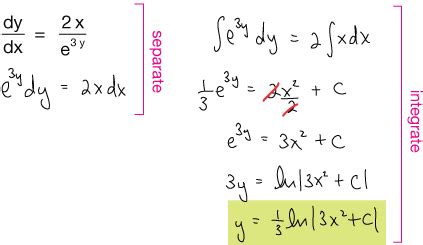 dy/dx = 2x/e^{3y}
e^{3y} dy = 2x dx
separate
∫e^{3y} dy = 2∫x dx
1/3 e^{3y} = 2x²/2 + C
e^{3y} = 3x² + C
3y = ln|3x² + C|
y = 1/3 ln|3x² + C|
integrate